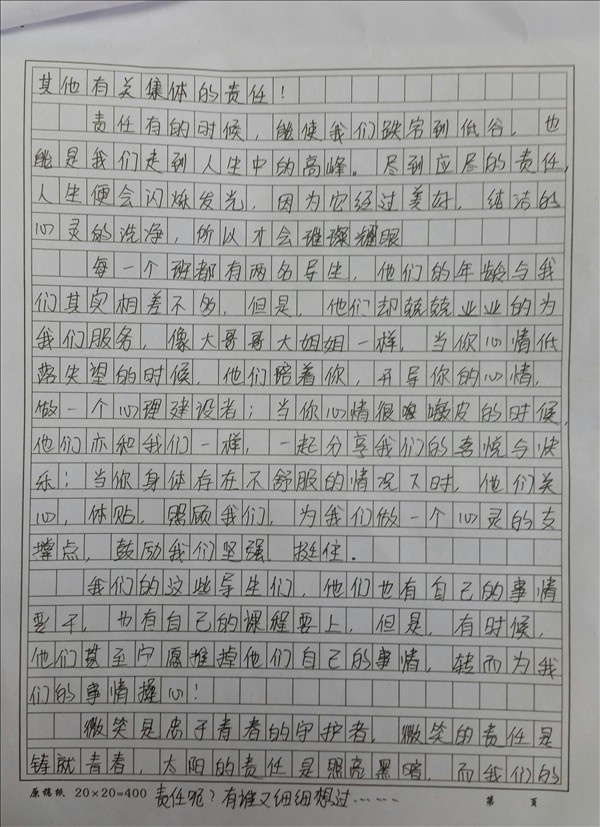 其他有关集体的责任！
责任有的时候，能使我们跌宕到低谷，也
能是我们走到人生中的高峰。尽到应尽的责任，
人生便会闪烁发光，因为它经过美好，结洁的
心灵的洗净，所以才会璀璨耀眼
每一个班都有两名导生，他们的年龄与我
们其实相差不多，但是，他们却兢兢业业的为
我们服务，像大哥哥大姐姐一样，当你心情低
落失望的时候，他们陪着你，开导你的心情，
做一个心理建设者；当你心情很嗷皮的时候，
他们亦和我们一样，一起分享我们的喜悦与快
乐；当你身体存在不舒服的情况下时，他们关
心，体贴，照顾我们，为我们做一个心灵的支
撑点，鼓励我们坚强，挺住。
我们的这些导生们，他们也有自己的事情
要干，也有自己的课程要上，但是，有时候，
他们甚至宁愿推掉他们自己的事情，转而为我
们的事情操心！
微笑是忠于青春的守护者，微笑的责任是
铸就青春，太阳的责任是照亮黑暗，而我们的
原稿纸 20×20=400 责任呢？有谁又细细想过…… 第 页